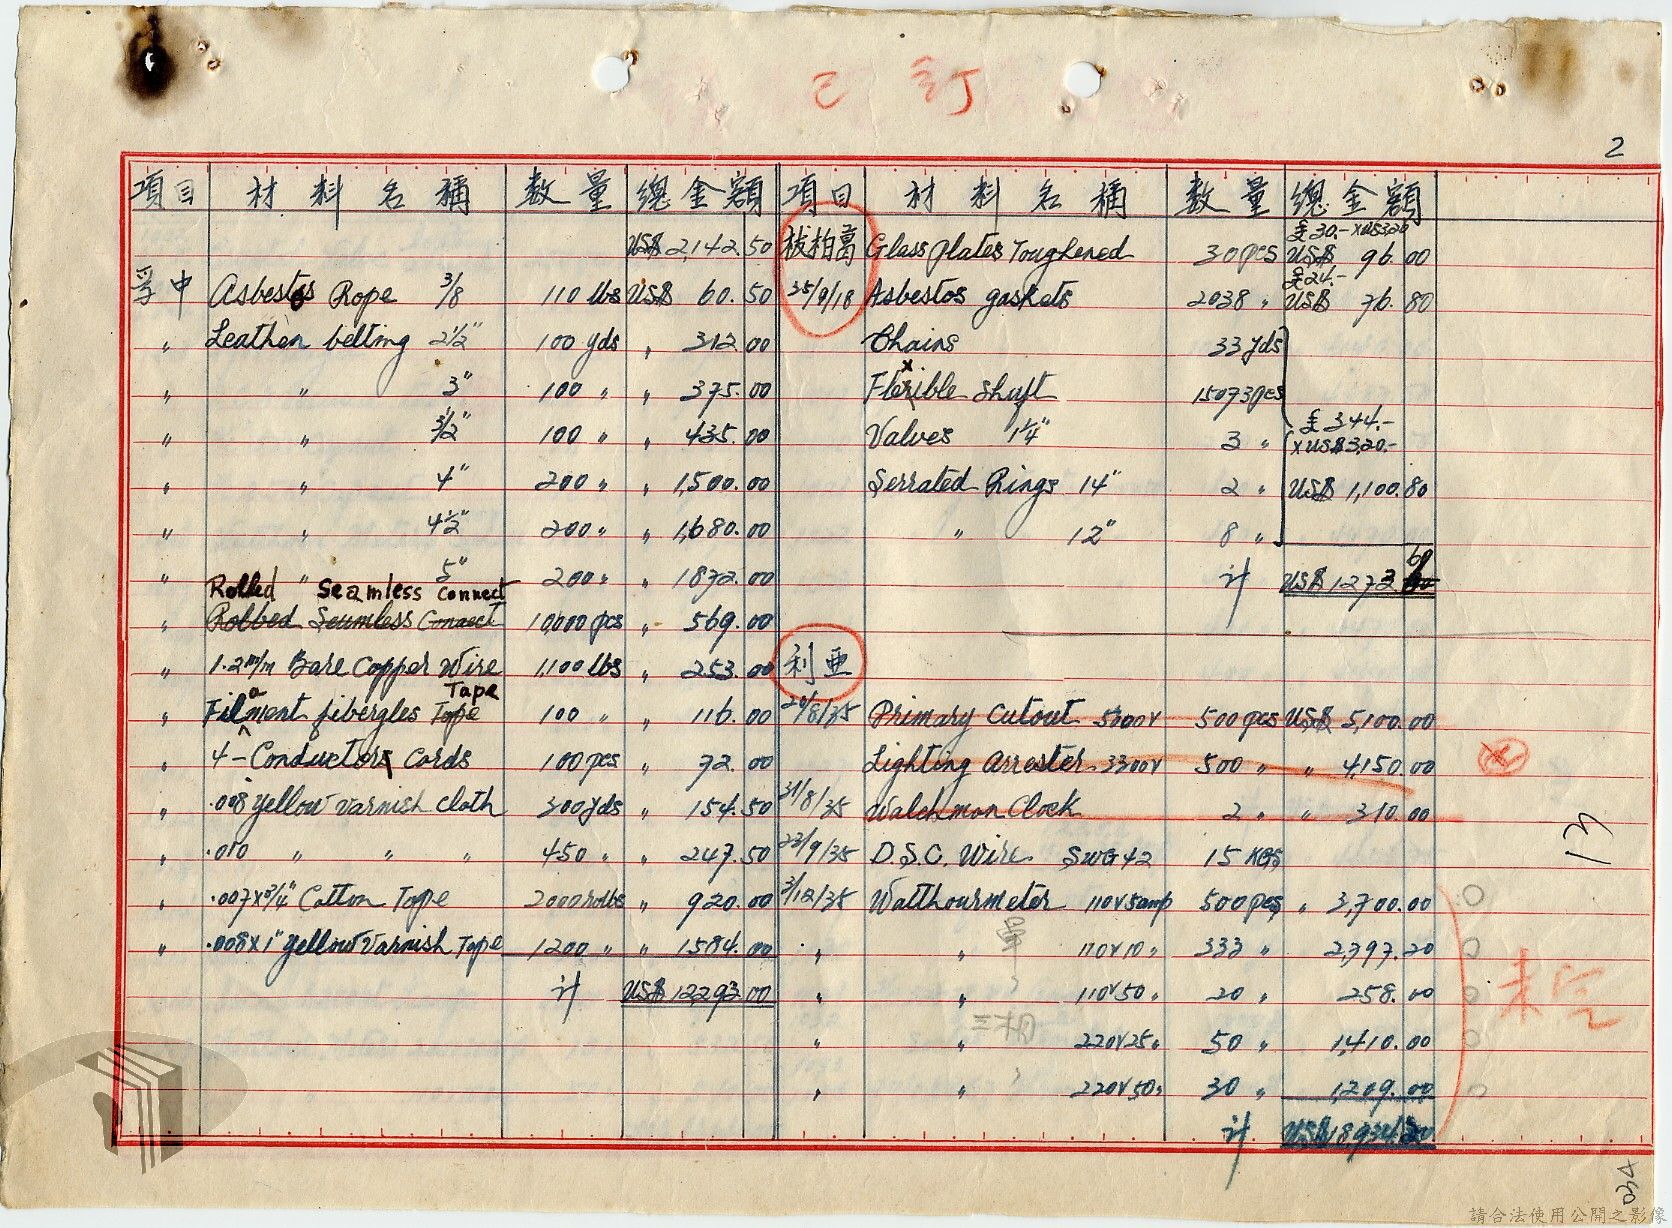 已訂
2
項目 材料名稱 數量 總金額 項目 材料名稱 數量 總金額
US$ 2,142.50
孚中 Asbestos Rope 3/8 110 lbs US$ 60.50
〃 Leather belting 2½" 100 yds 〃 312.00
〃 〃 3" 100 〃 〃 375.00
〃 〃 3½" 100 〃 〃 435.00
〃 〃 4" 200 〃 〃 1,500.00
〃 〃 4½" 200 〃 〃 1,680.00
〃 〃 5" 200 〃 〃 1872.00
Rolled Seamless Connect
〃 Robbed Seumless Connect 10,000 pcs 〃 569.00
〃 1.2 m/m Bare Copper Wire 1,100 lbs 〃 253.00
Tape
〃 Filament fibergles Tope 100 〃 〃 116.00
〃 4-Conductors Cords 100 pcs 〃 72.00
〃 .008 Yellow Varnish Cloth 300 yds 〃 154.50
〃 .010 〃 〃 〃 450 〃 〃 247.50
〃 .007 x 3/4" Cotton Tape 2000 rolls 〃 920.00
〃 .008 x 1" Yellow Varnish Tape 1200 〃 〃 1584.00
計 US$ 12293.00
£30.- x US3.20
柏萬 Glass plates Toughened 30 pcs US$ 96.00
£24.-
35/9/18 Asbestos gaskets 2038 〃 US$ 76.80
Chains 33 yds
x
Flexible shaft 15073 pcs
Valves 1¼" 3 〃 £344.-
x US$3.20.-
Serrated Rings 14" 2 〃 US$ 1,100.80
〃 12" 8 〃
計 US$ 1273.60
利亜
Primary Cutout 5000V 500 pcs US$ 5,100.00
Lighting Arrester 3300V 500 〃 〃 4,150.00
31/8/35 Watchman Clock 2 〃 〃 310.00
/9/35 D.S.C. Wire SWG 42 15 KGS
3/12/35 Watthourmeter 110V 5amp 500 pcs 〃 3,700.00
〃 〃 110V 10 〃 333 〃 2,797.20
〃 〃 110V 50 〃 20 〃 258.00
三相
〃 〃 220V 25 〃 50 〃 1,410.00
〃 〃 220V 50 〃 30 〃 1,209.00
計 US$ 18,934.20
13
未完
請合法使用公開之影像